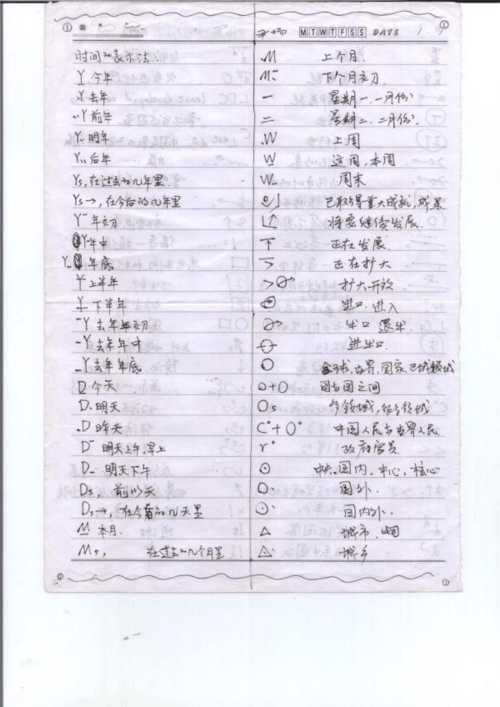 M T W T F S S DATE
时间的表示法:
Y 今年
·Y 去年
··Y 前年
Y. 明年
Y.. 后年
Ys, 在过去的几年里
Ys→, 在今后的几年里
Y 年初
Y 年中
Y 年底
Y 上半年
Y 下半年
-Y 去年年初
-Y 去年年中
-Y 去年年底
D 今天
D. 明天
.D 昨天
D 明天上午,早上
D 明天下午
Ds, 前几天
Ds→, 在今后的几天里
M 本月.
M, 在过去的几个月里
.M 上个月.
M 下个月初
一 星期一.一月份
二 星期二.二月份.
.W 上周
W 这周,本周
W 周末
已取得重大成就,成果
将要继续发展.
正在发展
正在扩大
扩大开放
进口.进入
出口 退出
进出口.
○+○ 国与国之间
Os 各领域,
C+O 中国人民与世界人民
r 政府官员
⊙ 中央,国内,中心,核心
国外.
国内外.
△ 城市,
城乡